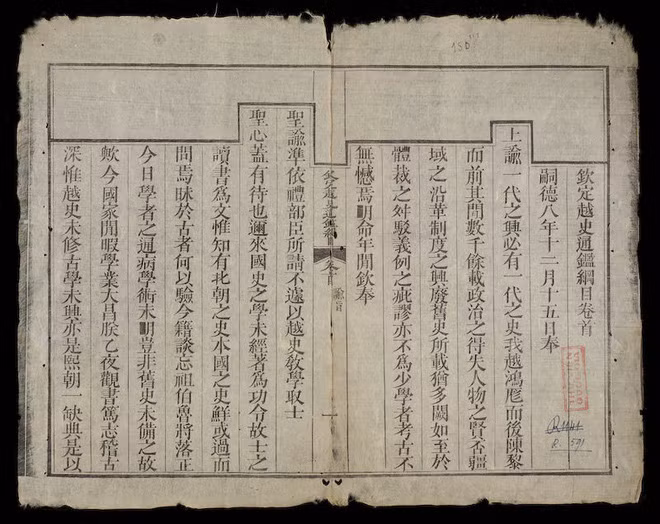 150
欽定越史通鑑綱目卷首
嗣德八年十二月十五日奉
上諭一代之興必有一代之史我越鴻厖而後陳黎
而前其間數千餘載政治之得失人物之賢否疆
域之沿革制度之興廢舊史所載猶多闕如至於
體裁之舛駁義例之疵謬亦不為少學者考古不
無憾焉明命年間欽奉
聖諭準依禮部臣所請不遽以越史敎學取士
聖心蓋有待也邇來國史之學未經著為功令故士之
讀書為文惟知有北朝之史本國之史鮮或過而
問焉昧於古者何以驗今籍談忘祖伯魯將落正
今日學者之通病學術未明豈非舊史未備之故
歟今國家閒暇學業大昌朕乙夜觀書篤志稽古
深惟越史未修古學未興亦是熙朝一缺典是以
R. 591